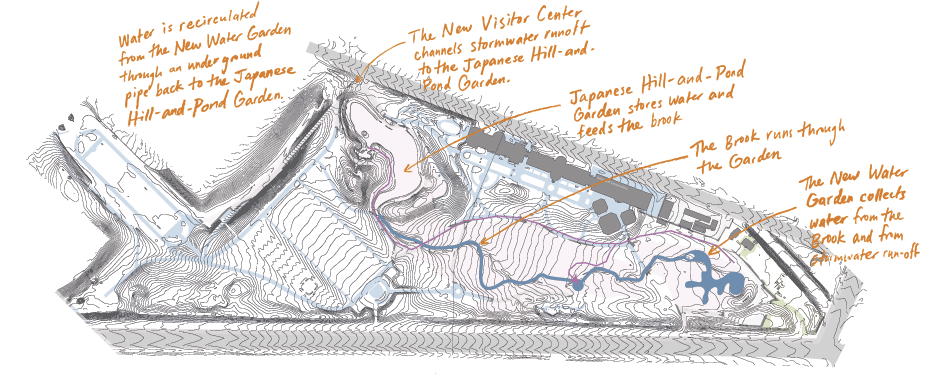 Water is recirculated
from the New Water Garden
through an underground
pipe back to the Japanese
Hill-and-Pond Garden.
The New Visitor Center
channels stormwater runoff
to the Japanese Hill-and-
Pond Garden.
Japanese Hill-and-Pond
Garden stores water and
feeds the brook
The Brook runs through
the Garden
The New Water
Garden collects
water from the
Brook and from
stormwater run-off